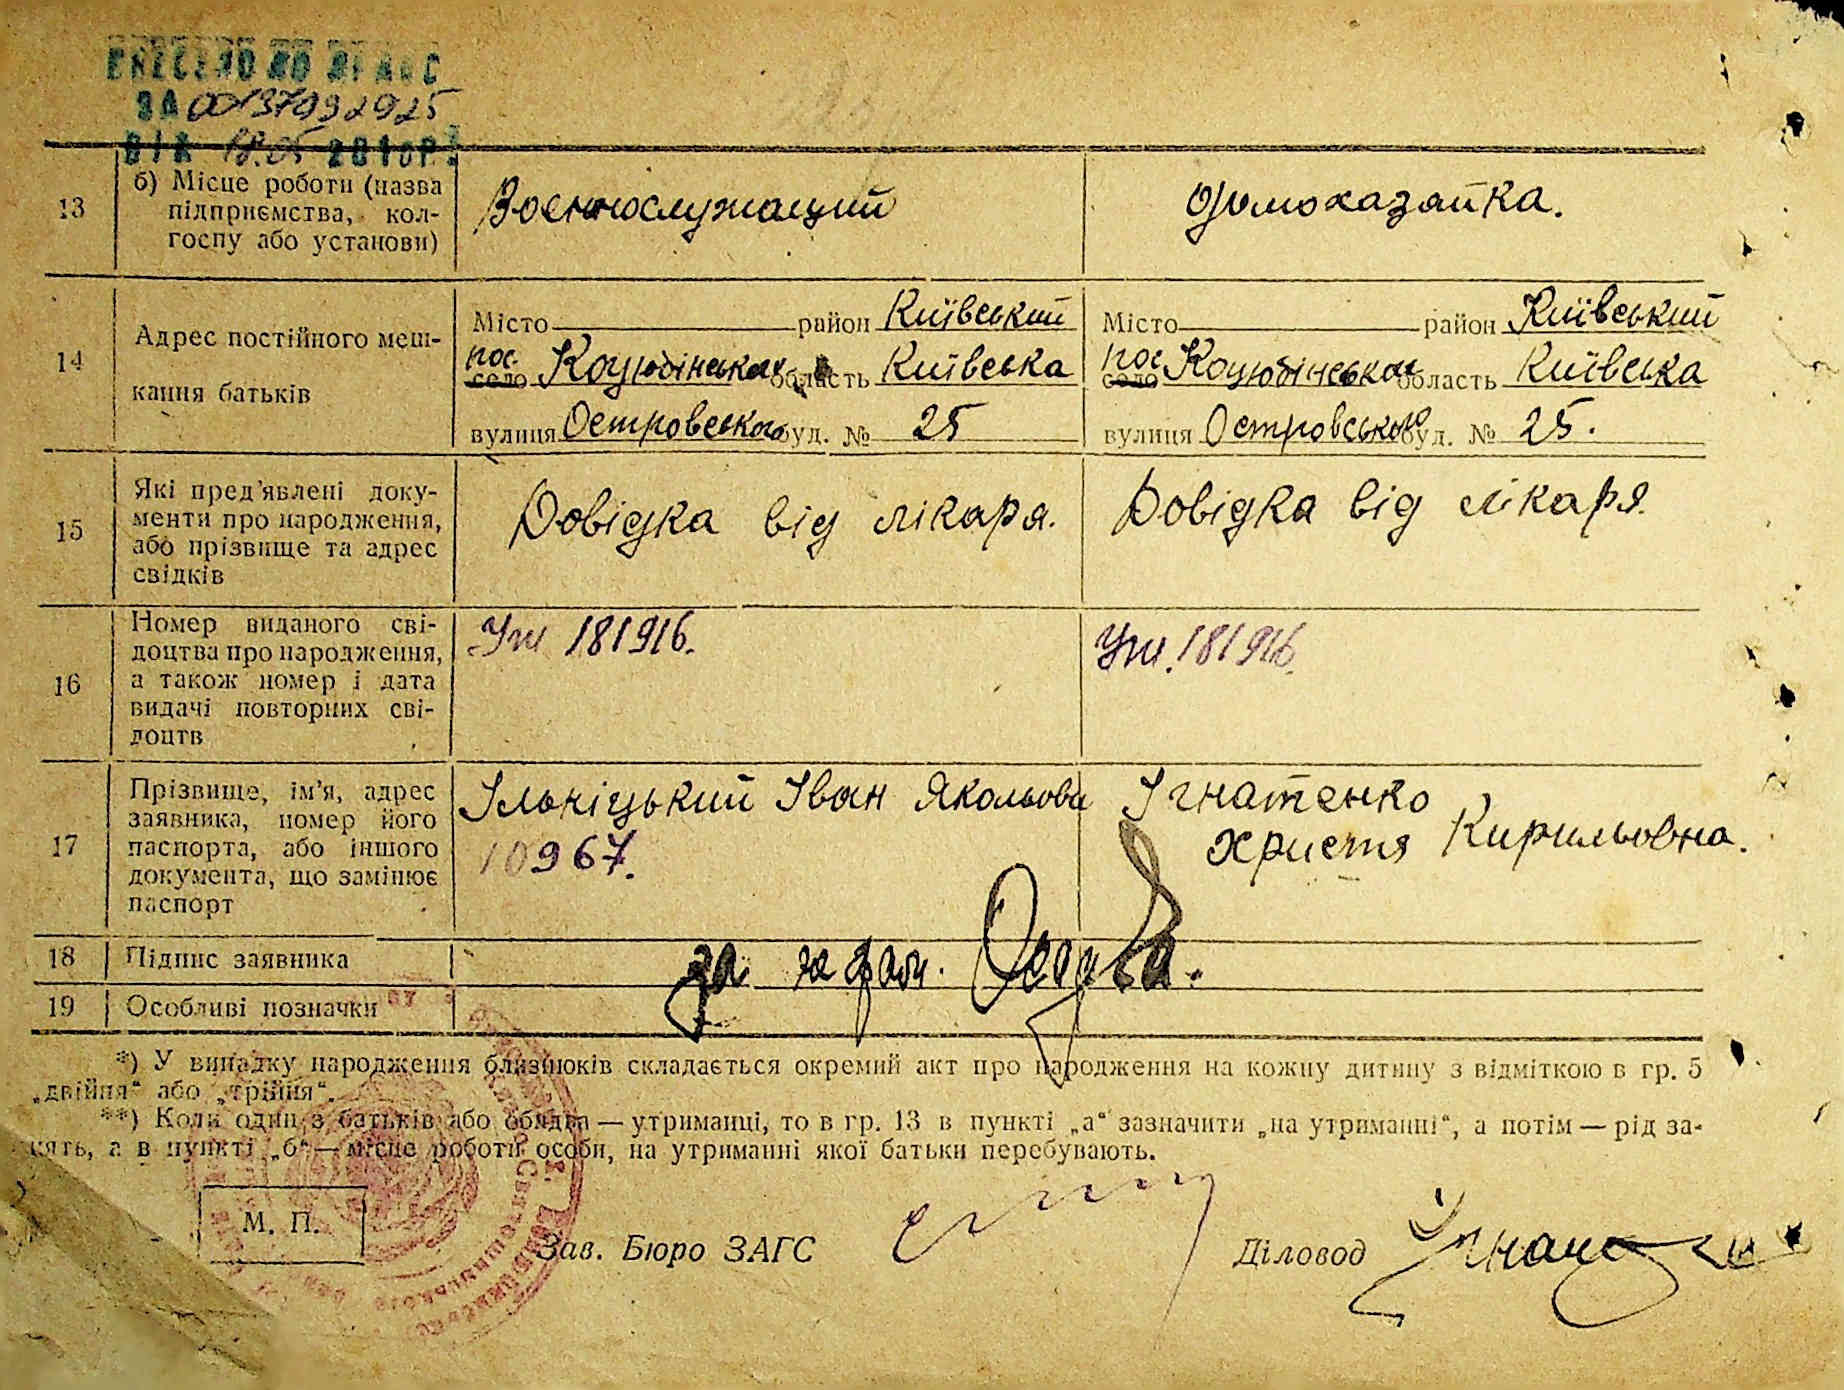 ВНЕСЕНО ДО ДРАЦС
ЗА 00137092925
ВІД 18.05 2010Р.
13 б) Місце роботи (назва підприємства, кол-
госпу або установи)
Военнослужащий
домохазайка.
14 Адрес постійного меш-
кання батьків
Місто район Київський
пос. село Коцюбінська область Київська
вулиця Островського буд. № 25
Місто район Київський
пос село Коцюбінська область Київська
вулиця Островського буд. № 25.
15 Які пред'явлені доку-
менти про народження,
або прізвище та адрес
свідків
Довідка від лікаря.
Довідка від лікаря.
16 Номер виданого сві-
доцтва про народження,
а також номер і дата
видачі повторних сві-
доцтв
181916.
181916.
17 Прізвище, ім'я, адрес
заявника, номер його
паспорта, або іншого
документа, що замінює
паспорт
Ільніцький Іван Якольови
10967.
Ігнатенко
Христя Кирильовна.
18 Підпис заявника
за
19 Особливі позначки
*) У випадку народження близнюків складається окремий акт про народження на кожну дитину з відміткою в гр. 5
„двійня“ або „трійня“.
**) Коли один з батьків або обидва — утриманці, то в гр. 13 в пункті „а“ зазначити „на утриманні“, а потім — рід за-
нять, а в пункті „б“ — місце роботи особи, на утриманні якої батьки перебувають.
М. П.
Зав. Бюро ЗАГС
Діловод